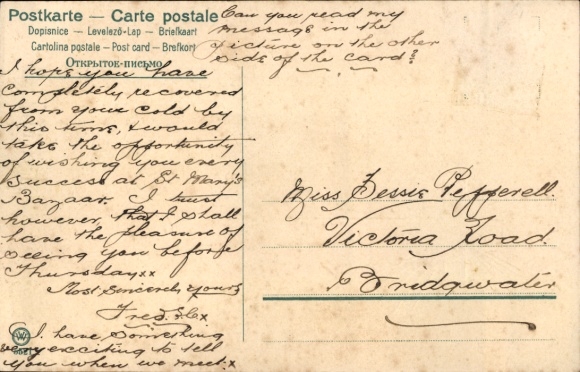 Postkarte — Carte postale
Dopisnice — Levelező-Lap — Briefkaart
Cartolina postale — Post card — Brefkort
Открытое-письмо
Can you read my
message in the
picture on the other
side of the card?
I hope you have
completely recovered
from your cold by
this time, & would
take the opportunity
of wishing you every
success at St Mary's
Bazaar. I trust
however, that I shall
have the pleasure of
seeing you before
Thursday xx
Most Sincerely Yours
Fred
I have something
very exciting to tell
you when we meet. x
Miss Bessie Pefferell.
Victoria Road.
Bridgwater